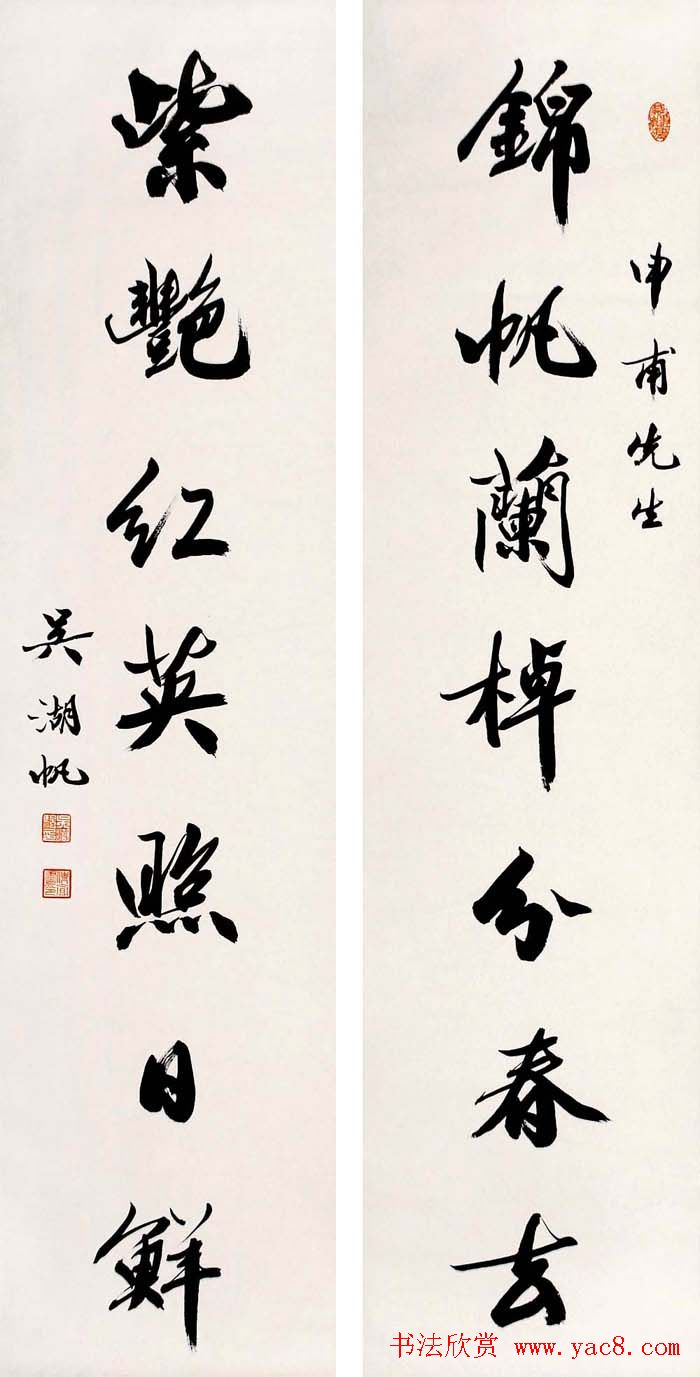 申甫先生
錦帆蘭棹分春去
紫艷紅英照日鮮
吳湖帆
书法欣赏 www.yac8.com